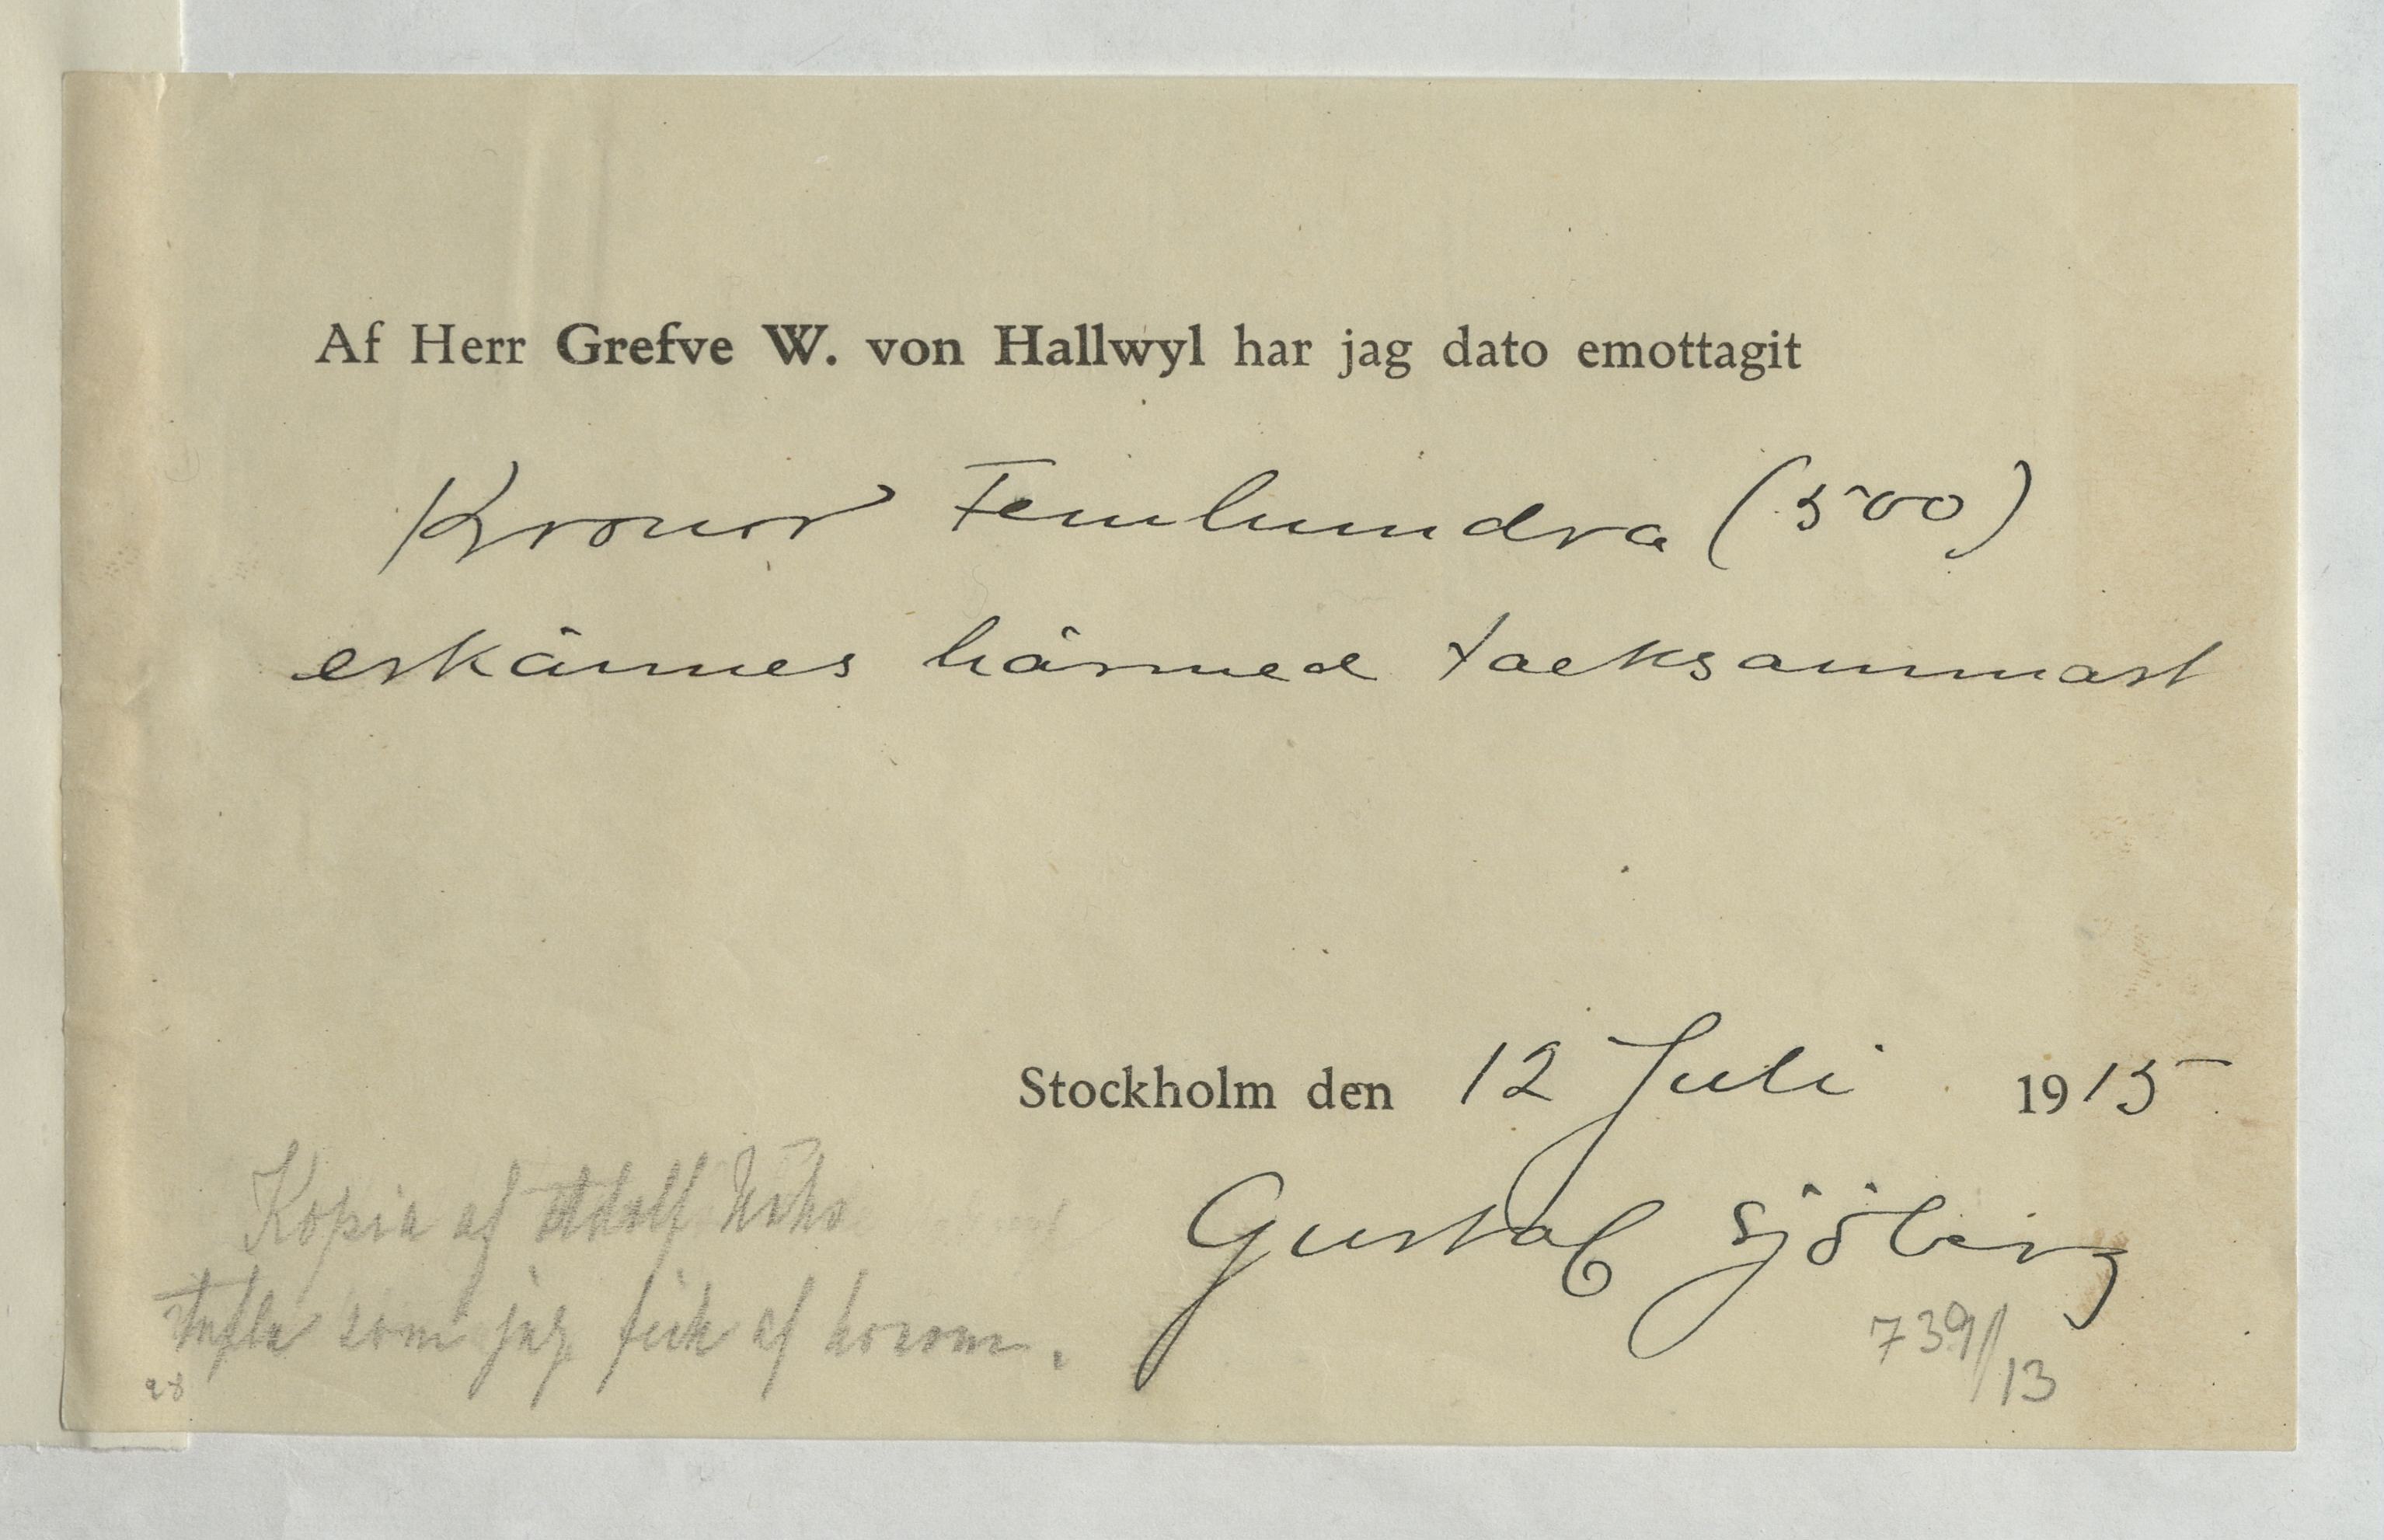 Af Herr Grefve W. von Hallwyl har jag dato emottagit
Kronor Femhundra (500)
erkännes härmed tacksammast
Stockholm den 12 Juli 1915
Gustaf Sjöberg
Kopia af Adolf
tafla som jag fick af honom.
739/13
28